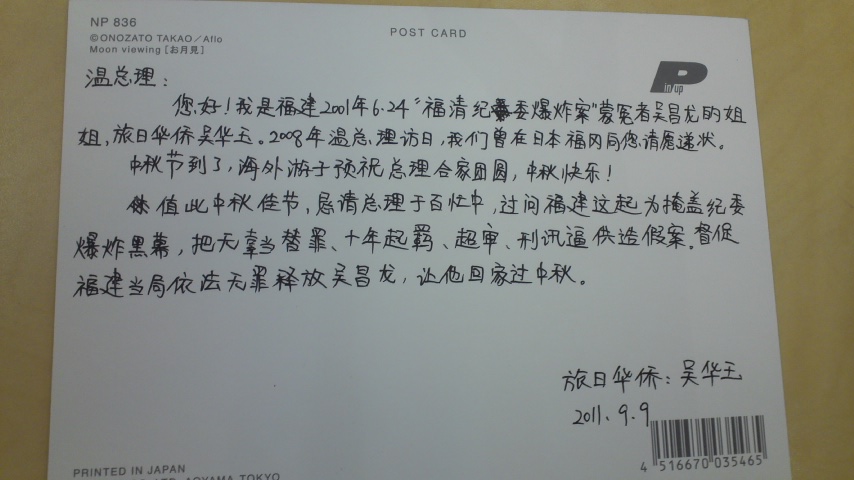 NP 836
©ONOZATO TAKAO/Aflo
Moon viewing [お月見]
POST CARD
P
in up
温总理：
您好！我是福建2001年6.24"福清纪委爆炸案"蒙冤者吴昌龙的姐
姐，旅日华侨吴华玉。2008年温总理访日，我们曾在日本福冈向您请愿递状。
中秋节到了，海外游子预祝总理合家团圆，中秋快乐！
值此中秋佳节，恳请总理于百忙中，过问福建这起为掩盖纪委
爆炸黑幕，把无辜当替罪、十年起羁、超审、刑讯逼供造假案。督促
福建当局依法无罪释放吴昌龙，让他回家过中秋。
旅日华侨：吴华玉
2011.9.9
4 516670 035465
PRINTED IN JAPAN
AOYAMA TOKYO